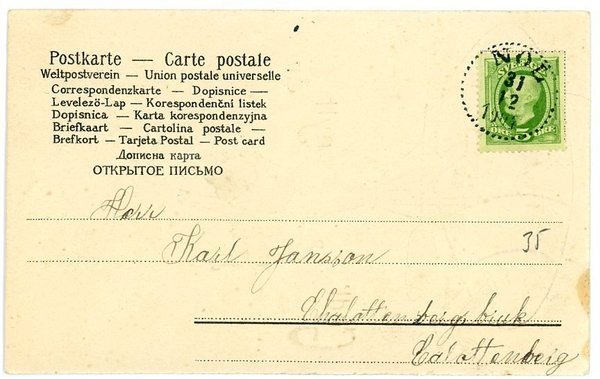 Postkarte — Carte postale
Weltpostverein — Union postale universelle
Correspondenzkarte — Dopisnice —
Levelező-Lap — Korespondenční listek
Dopisnica — Karta korespondenzyjna
Briefkaart — Cartolina postale —
Brefkort — Tarjeta Postal — Post card
Дописна карта
ОТКРЫТОЕ ПИСЬМО
SVERIGE
5 ÖRE
31
12
Herr
Karl Jansson
35